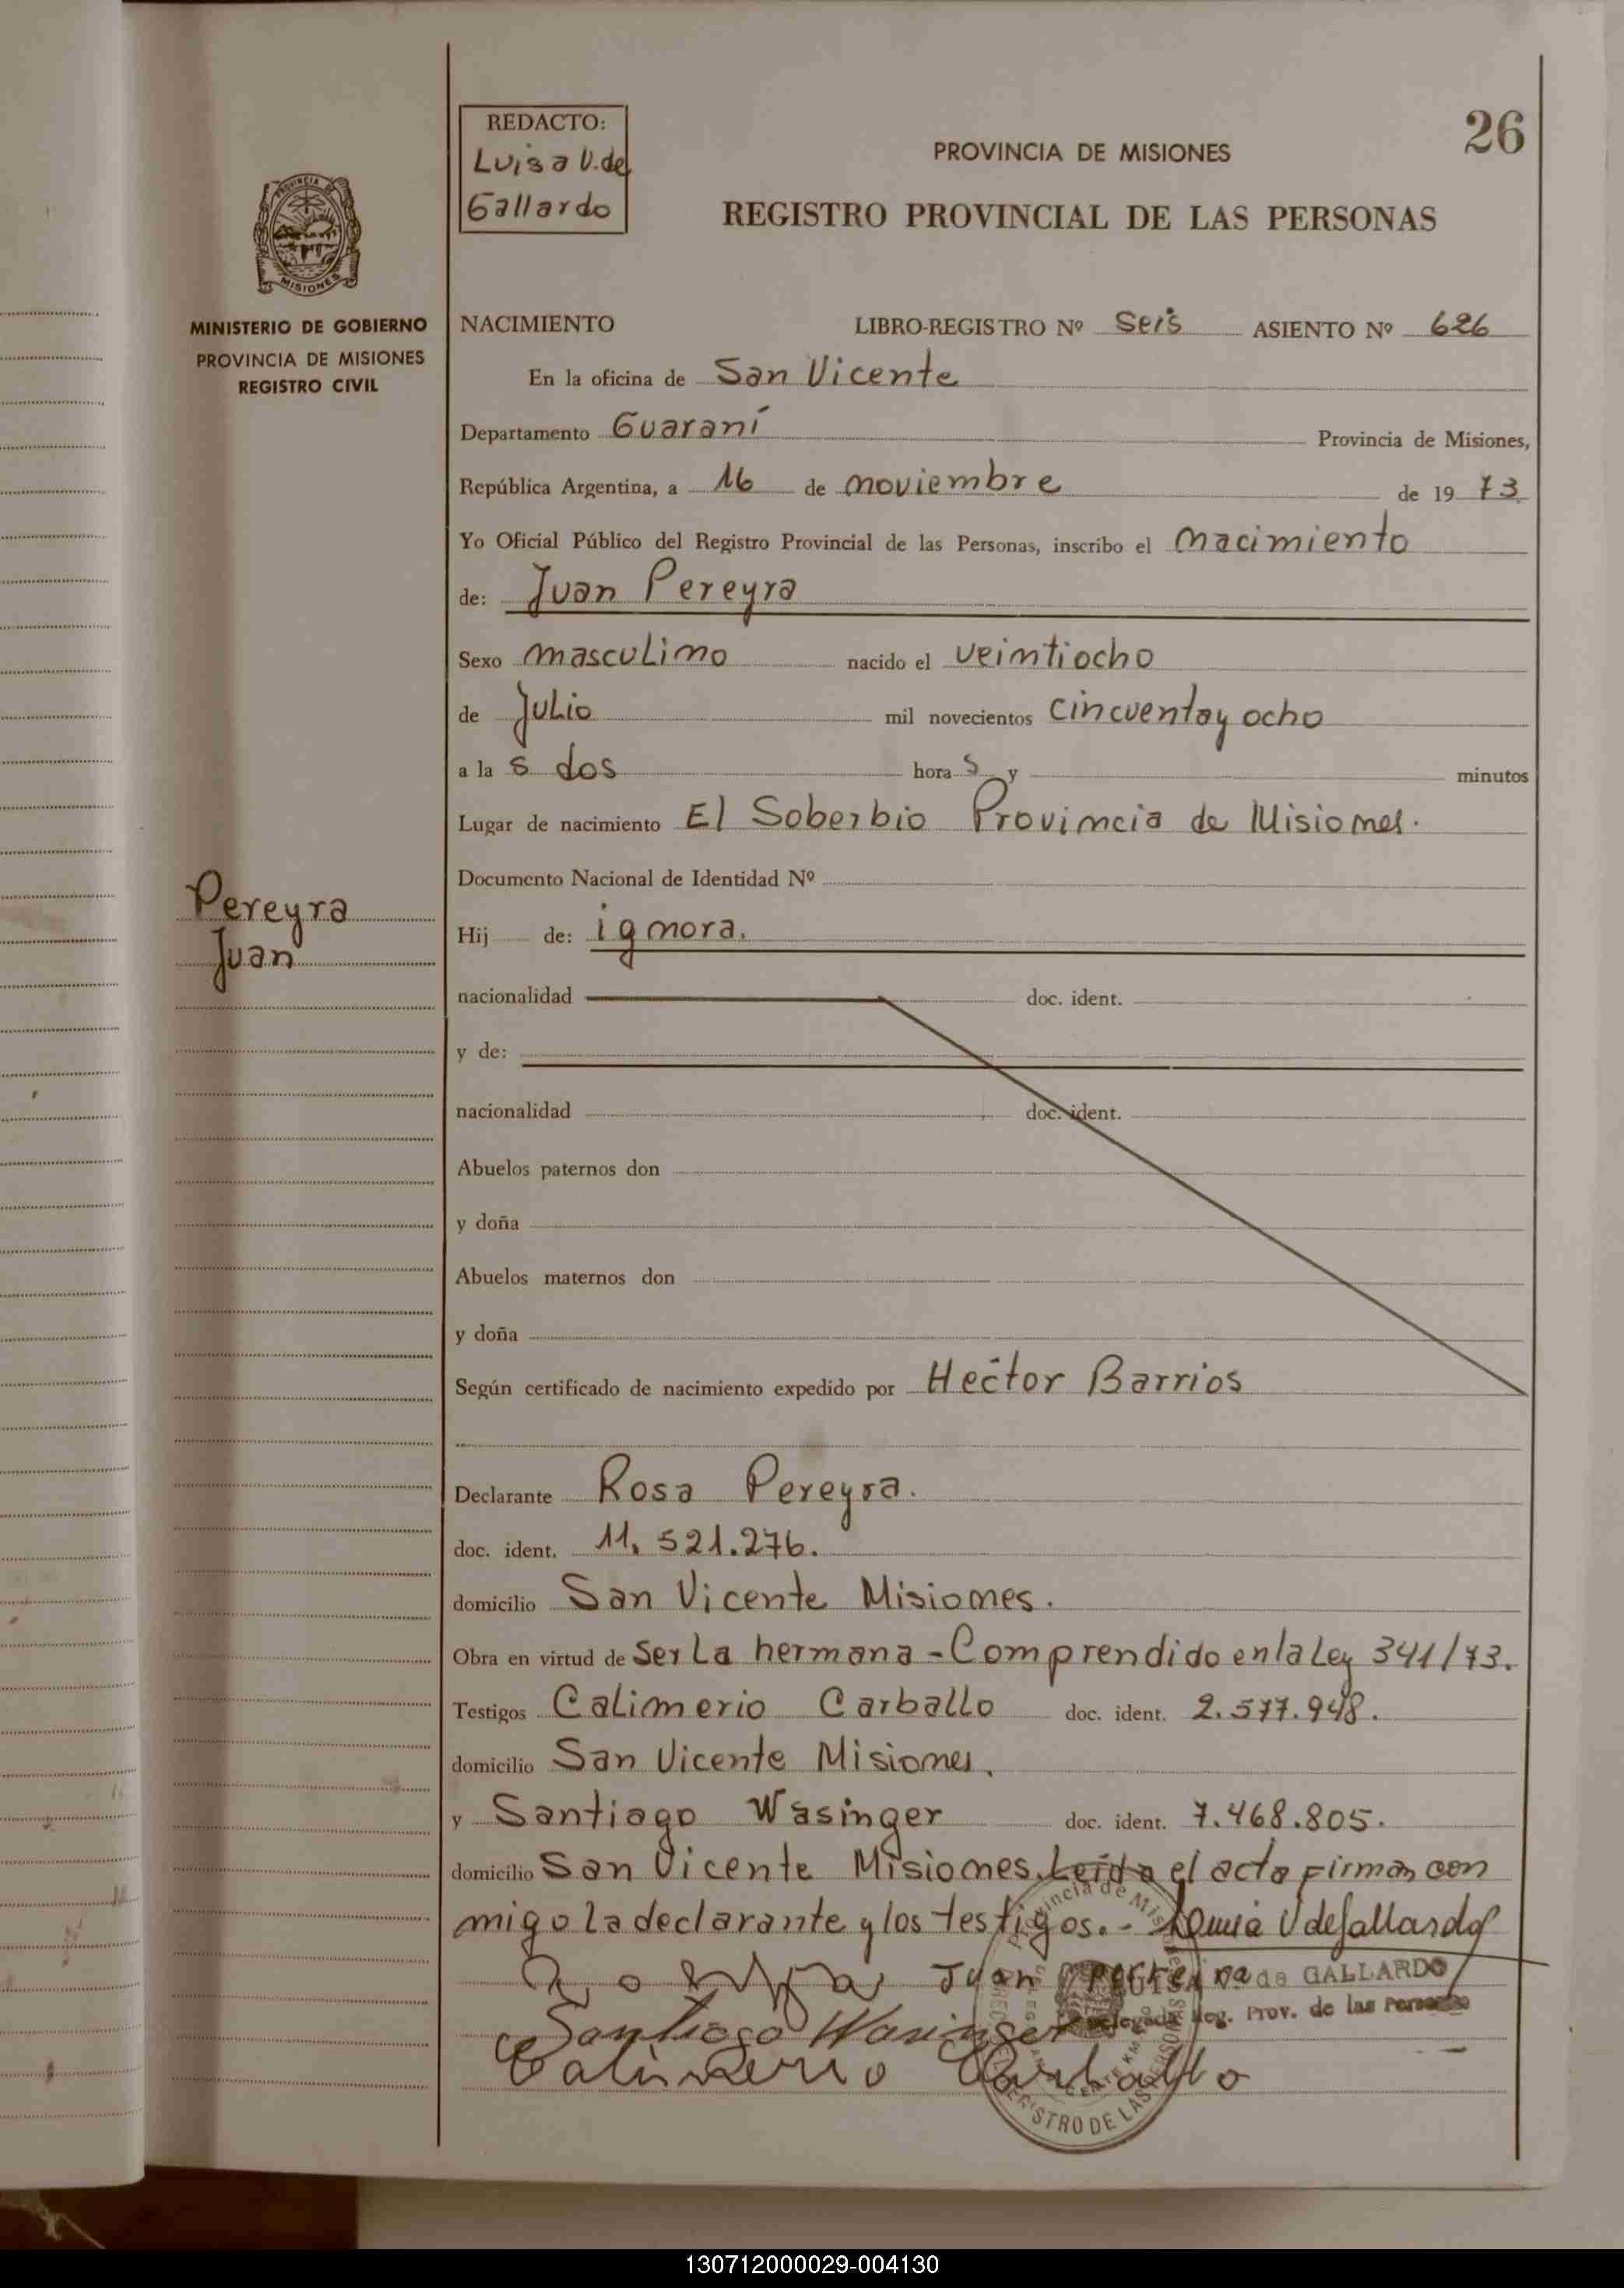 26
REDACTO:
Luisa V. de
Gallardo
PROVINCIA DE MISIONES
REGISTRO PROVINCIAL DE LAS PERSONAS
PROVINCIA DE
MISIONES
MINISTERIO DE GOBIERNO
PROVINCIA DE MISIONES
REGISTRO CIVIL
NACIMIENTO LIBRO-REGISTRO Nº Seis ASIENTO Nº 626
En la oficina de San Vicente
Departamento Guaraní Provincia de Misiones,
República Argentina, a 16 de noviembre de 1973
Yo Oficial Público del Registro Provincial de las Personas, inscribo el nacimiento
de: Juan Pereyra
Sexo masculino nacido el veintiocho
de Julio mil novecientos cincuenta y ocho
a las dos horas y minutos
Lugar de nacimiento El Soberbio Provincia de Misiones.
Documento Nacional de Identidad Nº
Pereyra
Juan
Hij de: ignora.
nacionalidad doc. ident.
y de:
nacionalidad doc. ident.
Abuelos paternos don
y doña
Abuelos maternos don
y doña
Según certificado de nacimiento expedido por Hector Barrios
Declarante Rosa Pereyra.
doc. ident. 11.521.276.
domicilio San Vicente Misiones.
Obra en virtud de Ser La hermana - Comprendido en la Ley 341/73.
Testigos Calimerio Carballo doc. ident. 2.577.948.
domicilio San Vicente Misiones.
y Santiago Wasinger doc. ident. 7.468.805.
domicilio San Vicente Misiones. Leida el acta firman con
migo la declarante y los testigos. - Luisa V de Gallardo
Juan Perreyra
LUISA V. de GALLARDO
Delegada Reg. Prov. de las Personas
Santiago Wasinger
Calimerio Carballo
Provincia de Misiones
REGISTRO DE LAS PERSONAS
130712000029-004130